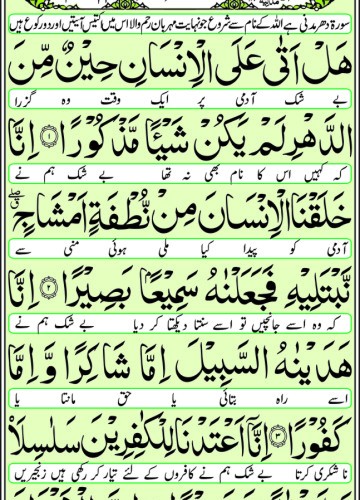 سورۃ دھر مدنی ہے اللہ کے نام سے شروع جو نہایت مہربان رحم والا اس میں اکتیس آیتیں اور دو رکوع ہیں
هَلْ اَتٰى عَلَى الْاِنْسَانِ حِيْنٌ مِّنَ
بے شک آدمی پر ایک وقت وہ گزرا
الدَّهْرِ لَمْ يَكُنْ شَيْـًٔا مَّذْكُوْرًا ۝۱ اِنَّا
کہ کہیں اس کا نام بھی نہ تھا بے شک ہم نے
خَلَقْنَا الْاِنْسَانَ مِنْ نُّطْفَةٍ اَمْشَاجٍ ۖۗ
آدمی کو پیدا کیا ملی ہوئی منی سے
نَّبْتَلِيْهِ فَجَعَلْنٰهُ سَمِيْعًۢا بَصِيْرًا ۝۲ اِنَّا
کہ وہ اسے جانچیں تو اسے سنتا دیکھتا کر دیا بے شک ہم نے
هَدَيْنٰهُ السَّبِيْلَ اِمَّا شَاكِرًا وَّاِمَّا
اسے راہ بتائی یا حق مانتا یا
كَفُوْرًا ۝۳ اِنَّاۤ اَعْتَدْنَا لِلْكٰفِرِيْنَ سَلٰسِلَا۠
ناشکری کرتا بے شک ہم نے کافروں کے لئے تیار کر رکھی ہیں زنجیریں